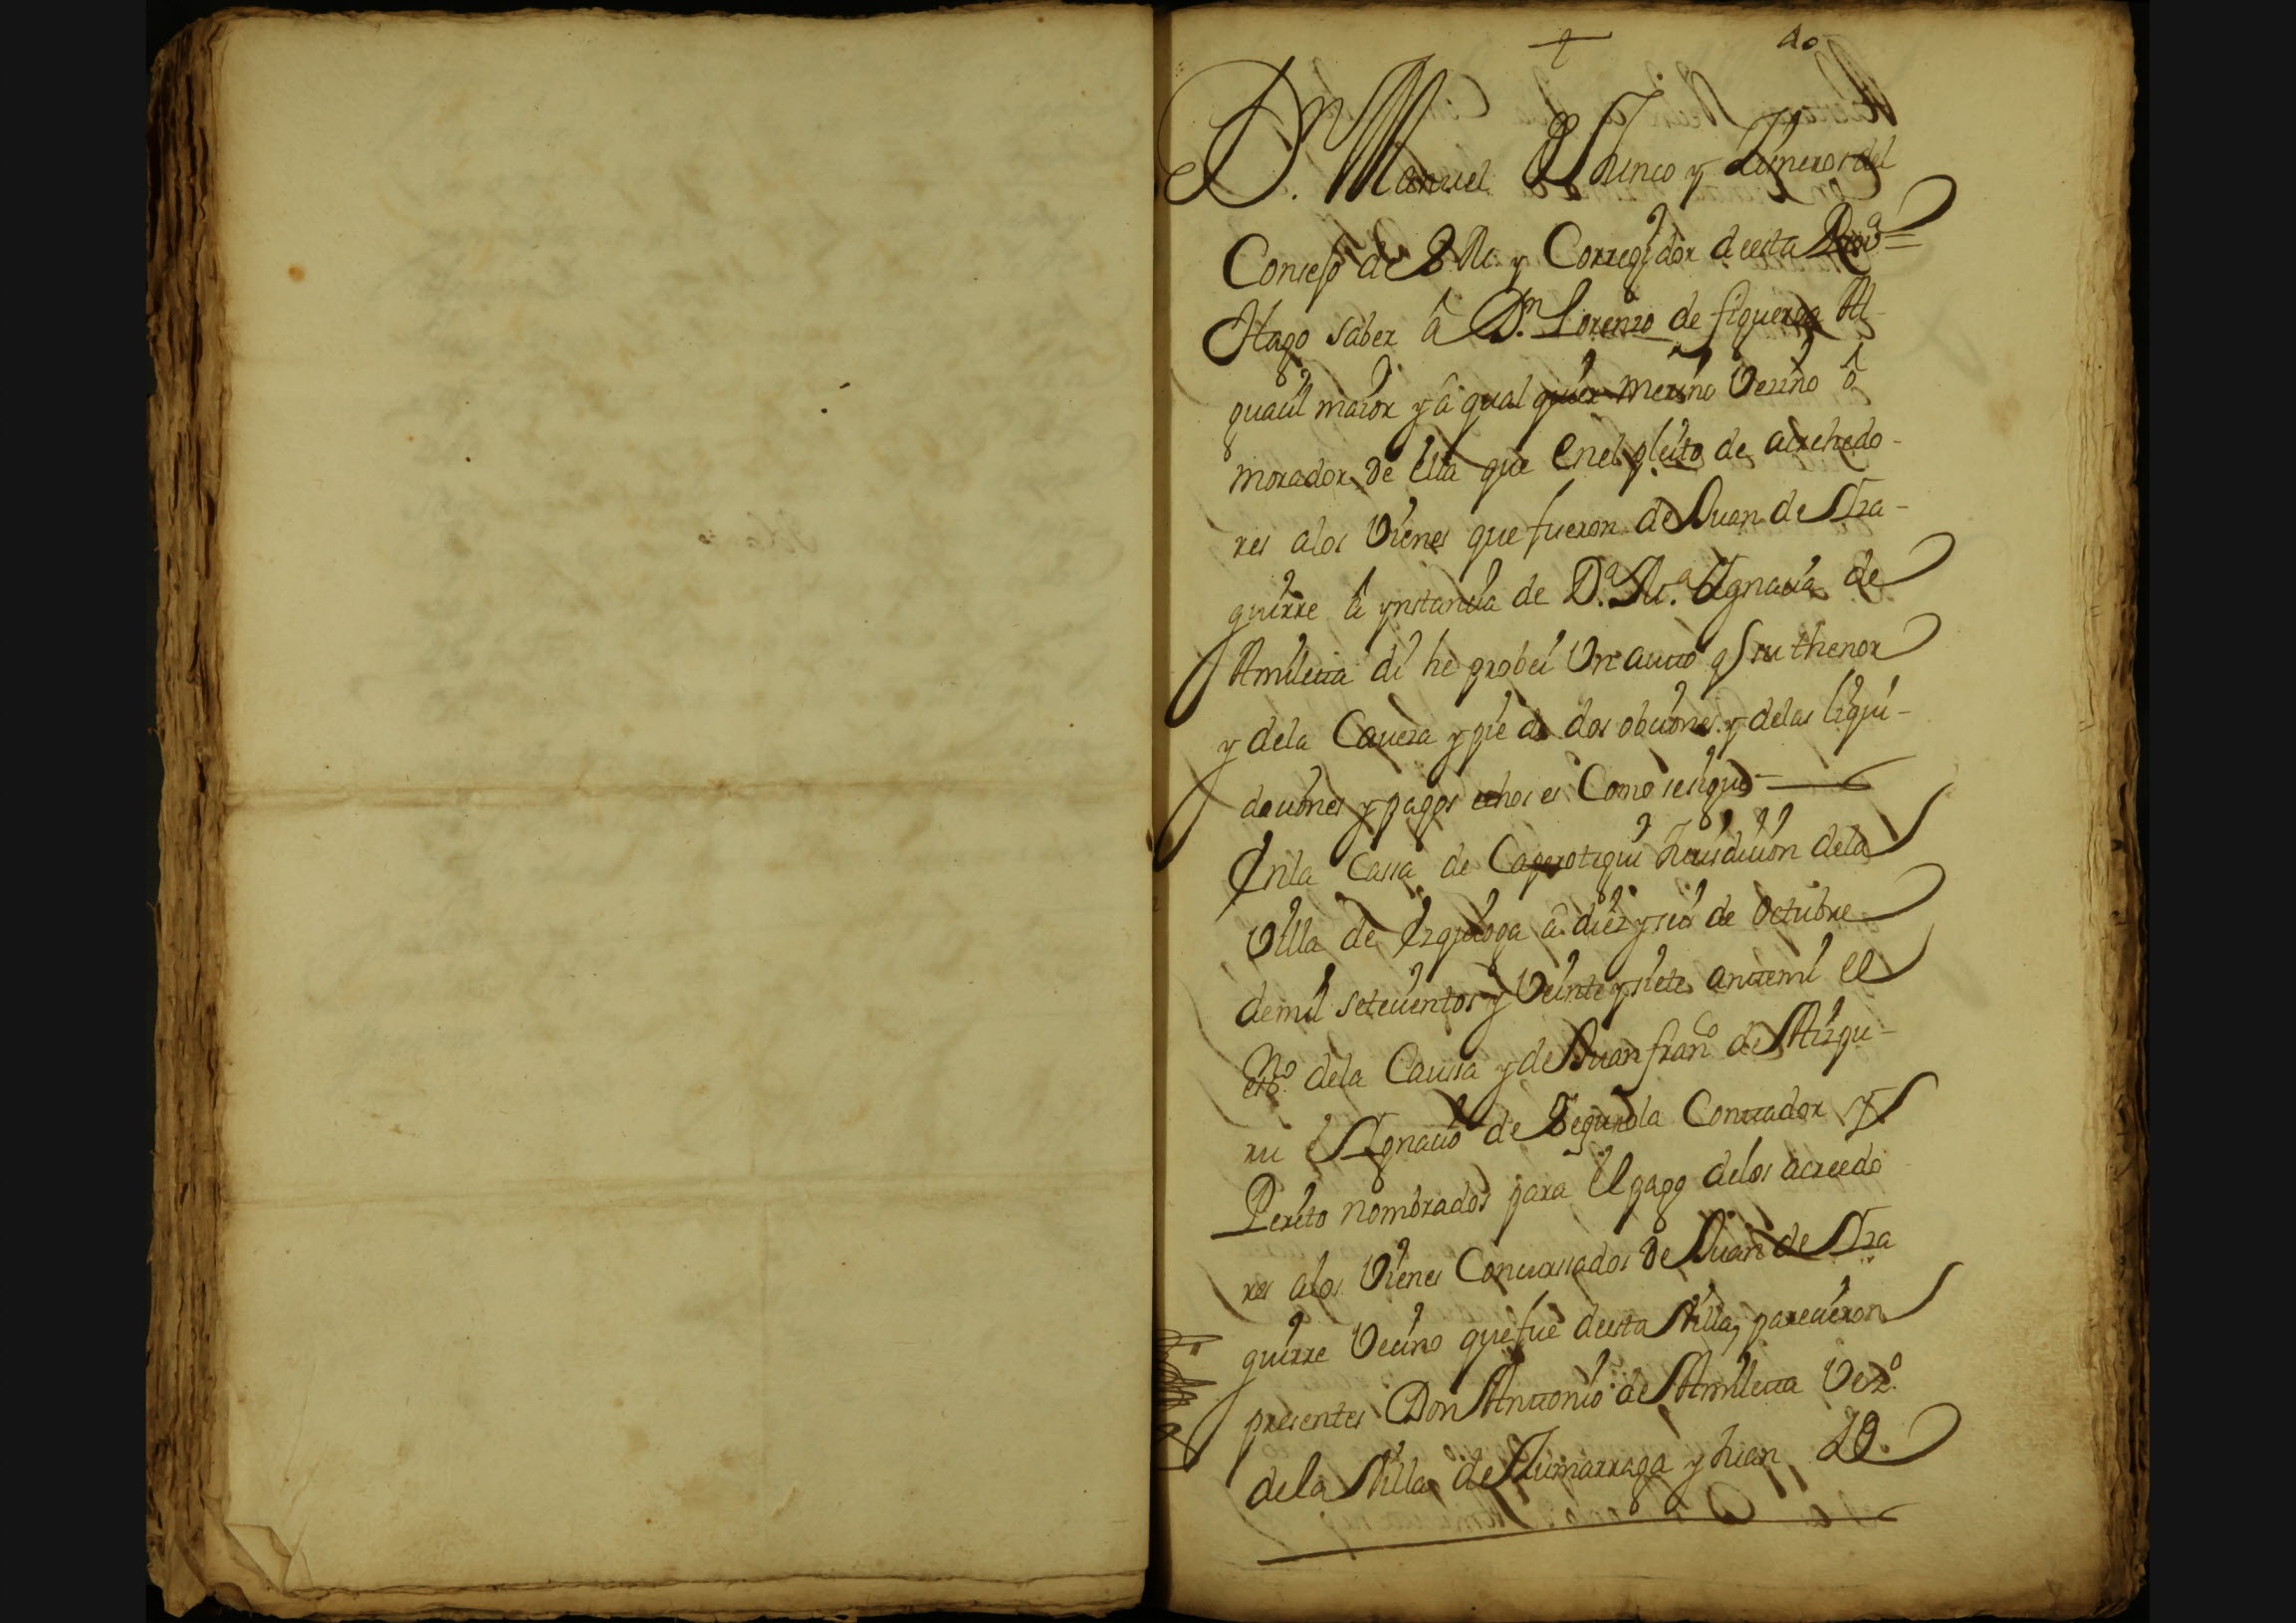 40
Dn. Manuel Junco y Zisneros del
Consejo de S. M. y Corregidor de esta Prova.
Hago saver â Dn. Lorenzo de figueroa Al-
guacil maior y â qual quier merino Vezino ô
morador de ella que en el pleito de acrehedo-
res a los Vienes que fueron de Juan de Iza-
guirre â ynstancia de D.a M.a Ygnacia de
Amiletta di he probei Un autto q su thenor
y de la Caveza y pie de dos obciones y de las liqui-
daciones y pagos echos es Como se sigue
En la Cassa de Caperotegui Jurisdicion de la
Villa de Ezquioga â diez y seis de octubre
de mil setecientos y Veinte y siete antte mi el
esno. de la Caussa y de Juan franco. de Aizqu-
ru Ygnacio de Segurola Conttador y
Perito nombrados para el pago de los acreedo
res a los Vienes Concursados de Juan de Iza
guirre Vecino que fue de esta Villa, parecieron
presentes Don Anttonio de Amiletta Vezo.
de la Villa de Zumarraga y Juan